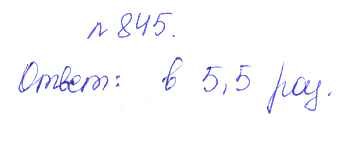 № 845.
Ответ: в 5,5 раз.